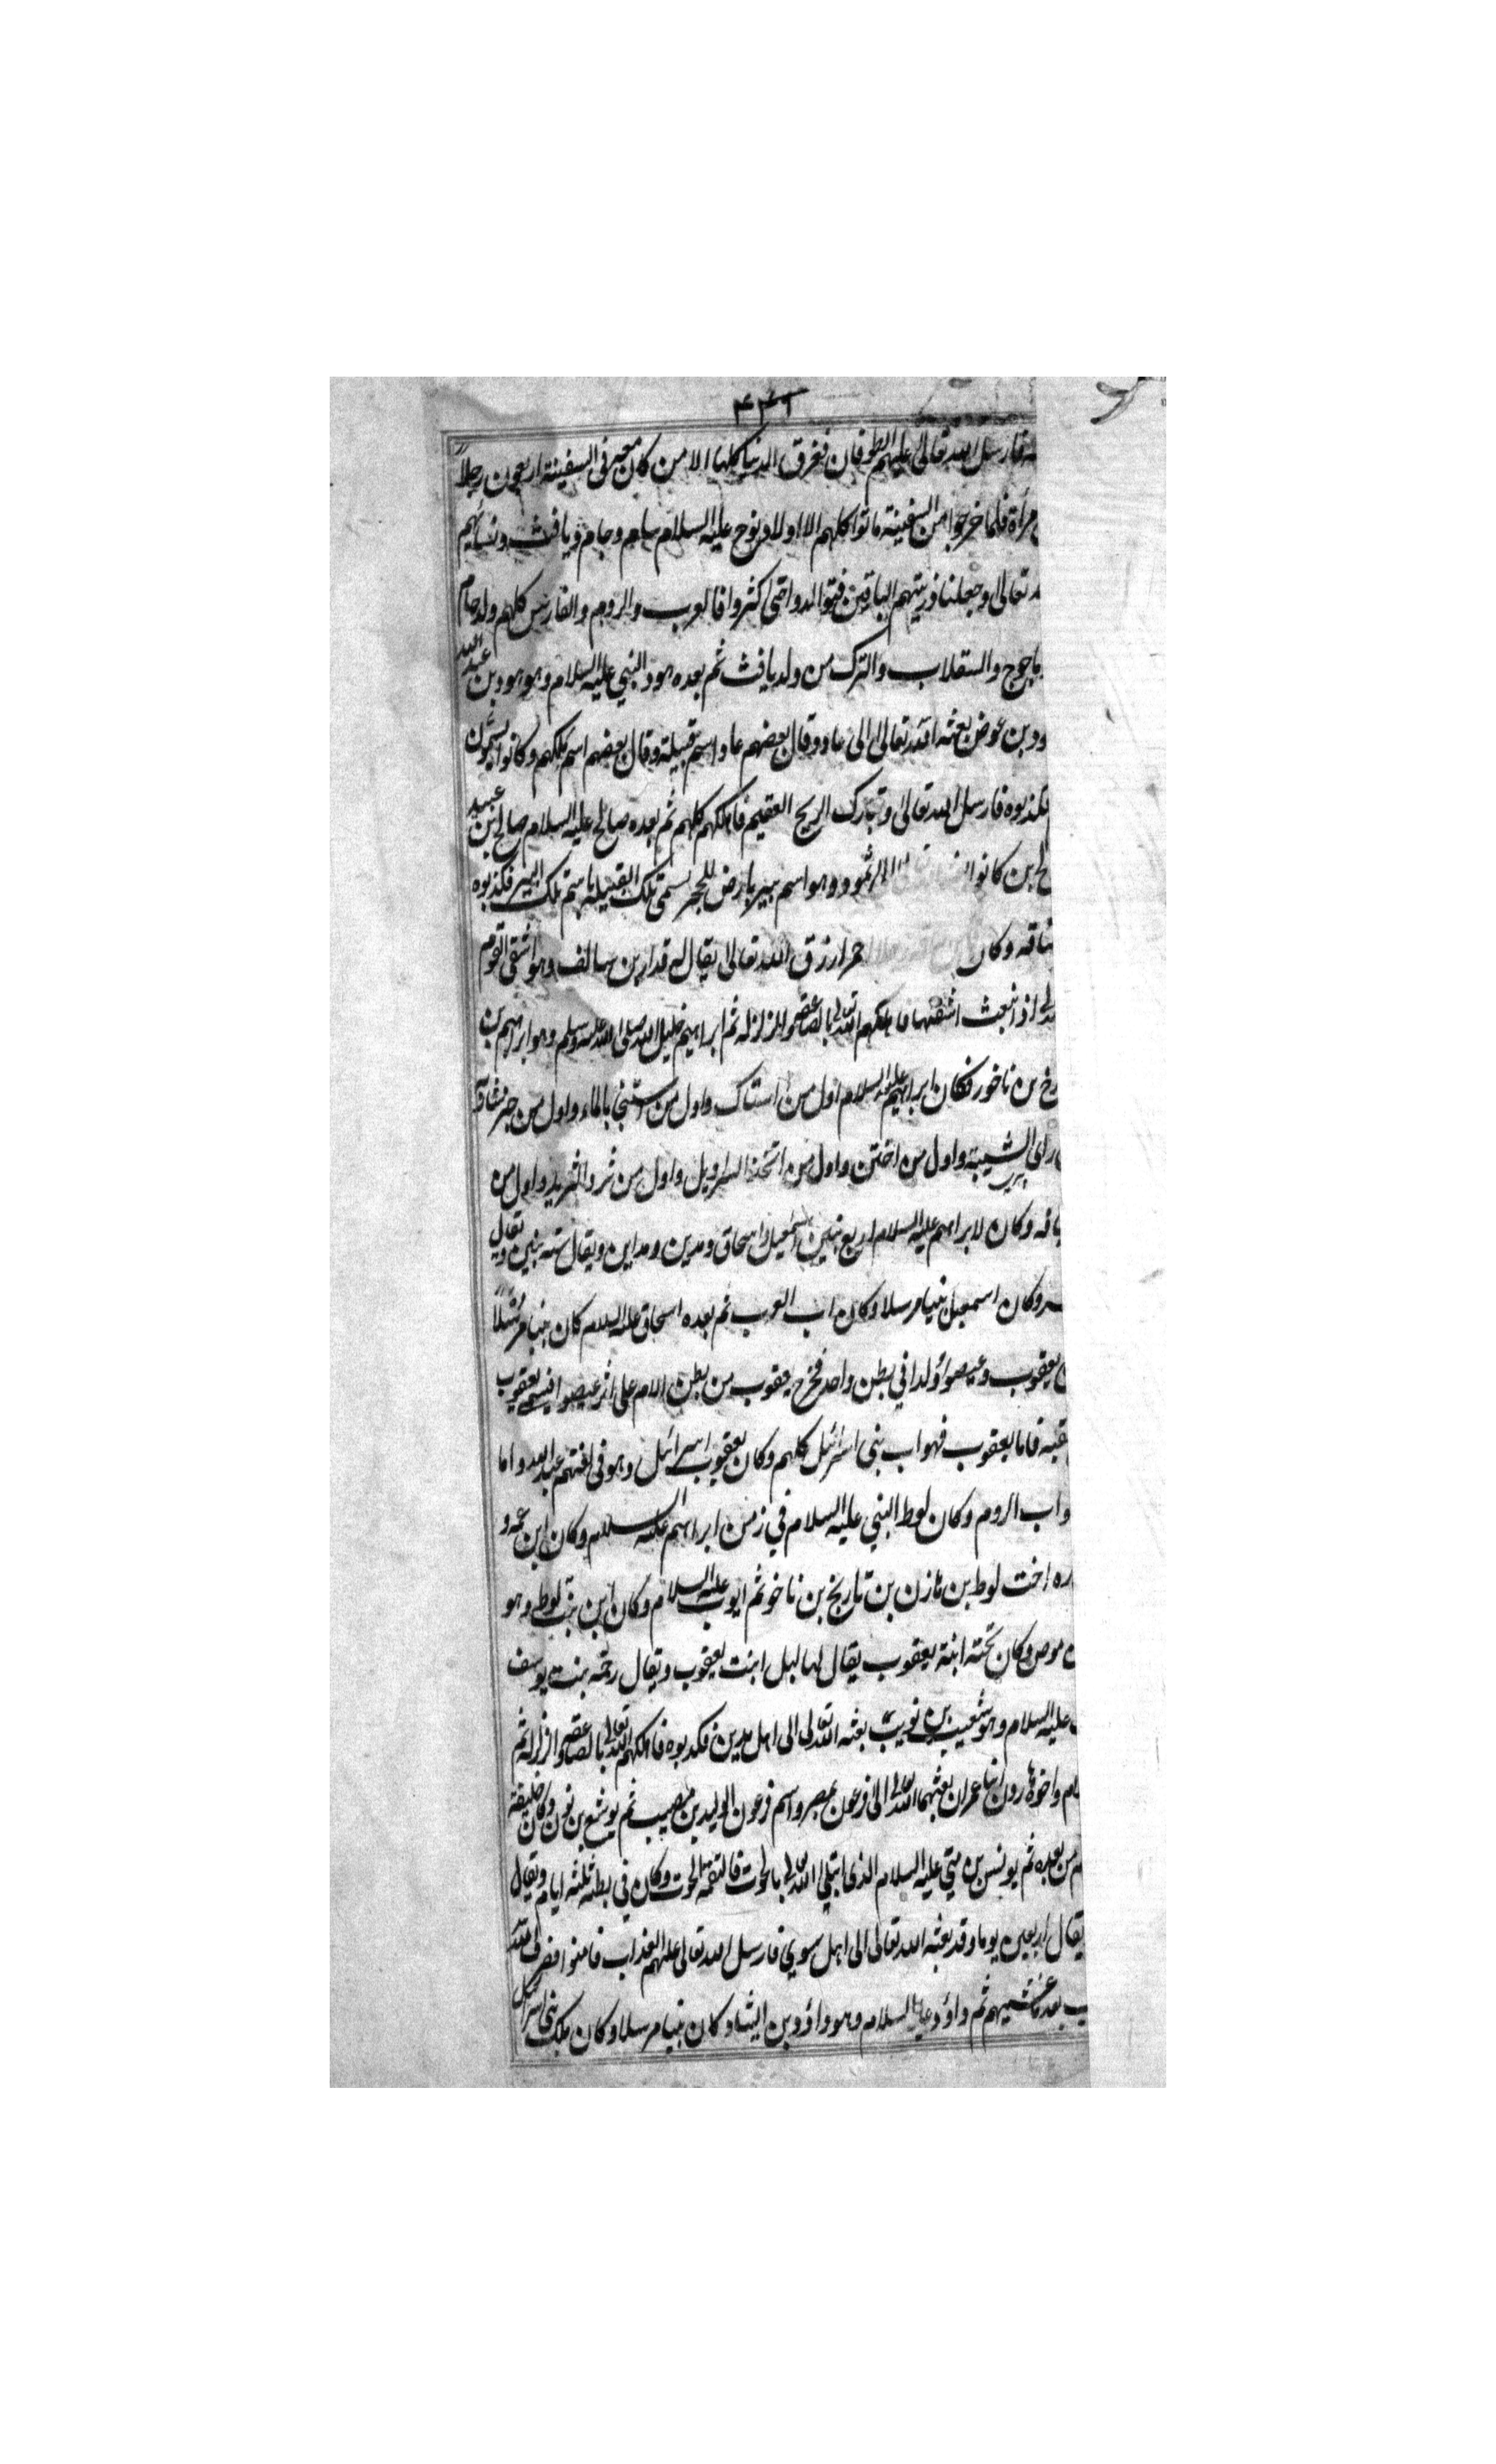 فارسل الله تعالى عليهم الطوفان فغرق الدنيا كلها الا من كان معه في السفينة اربعون رجلاً
مرأة فلما خرجوا من السفينة ماتوا كلهم الا اولاد نوح عليه السلام سام وحام ويافث ونسائهم
تعالى وجعلنا ذريتهم الباقين فتوالدوا حتى كثروا فالعرب والروم والفارس كلهم ولد حام
ياجوج والسقلاب والترك من ولد يافث ثم بعده هود النبي عليه السلام وهو هود بن عبد الله
ود بن عوض بعثه الله تعالى الى عاد وقال بعضهم عاد اسم قبيلة وقال بعضهم اسم ملكهم وكانوا يسمون
فكذبوه فارسل الله تعالى وتبارك الريح العقيم فاهلكهم كلهم ثم بعده صالح عليه السلام صالح بن عبيد
بن كانوا ثمود وهو اسم بير بارض الحجر يسمى تلك القبيلة باسم تلك البير فكذبوه
ناقه وكان احمر ازرق الله تعالى يقال له قدار بن سالف وهو اشقى القوم
اذ انبعث اشقها فاهلكهم الله تعالى بالصاعقه والزلزله ثم ابراهيم خليل الله صلى الله عليه وسلم وهو ابراهيم بن
رخ بن ناخور فكان ابراهيم عليه السلام اول من استاك واول من استنجا بالماء واول من جز شاربه
راى الشيبة واول من اختتن واول من اتخذ السراويل واول من ثرد الثريد واول من
يافه وكان لابراهيم عليه السلام اربع بنين اسمعيل واسحاق ومدين ومداين ويقال سته بنين ويقال
وكان اسمعيل نبيا مرسلا وكان اب العرب ثم بعده اسحاق عليه السلام كان نبيا مرسلاً
يعقوب وعيصو اولدا في بطن واحد فخرج يعقوب من بطن الام على اثر عيصو فسمي يعقوب
عقبه فاما يعقوب فهو اب بني اسرائيل كلهم وكان يعقوب اسرائيل وهو في لغتهم عبد الله واما
و اب الروم وكان لوط النبي عليه السلام في زمن ابراهيم عليه السلام وكان ابن عمه و
ره اخت لوط بن مازن بن تاريخ بن ناخو ثم ايوب عليه السلام وكان ابن بنت لوط وهو
موص وكان تحته ابنة يعقوب يقال لها ليل ابنت يعقوب ويقال رحمه بنت يوسف
عليه السلام وهو شعيب بن نويب بعثه الله تعالى الى اهل مدين فكذبوه فاهلكهم الله تعالى بالصاعقه والزلزله ثم
واخوه هارون ابنا عمران بعثهما الله تعالى الى فرعون بمصر واسم فرعون الوليد بن مصيب ثم يوشع بن نون وكان خليفة
من بعده ثم يونس بن متي عليه السلام الذى ابتلى الله تعالى بالحوت فالتقمه الحوت وكان في بطنه ثلثه ايام ويقال
يقال اربعين يوما وقد بعثه الله تعالى الى اهل سوي فارسل الله تعالى عليهم العذاب فامنوا فصرف الله
بعد ما غشيهم ثم داود عليه السلام وهو داود بن ايشا وكان نبيا مرسلا وكان ملك بني اسرائيل